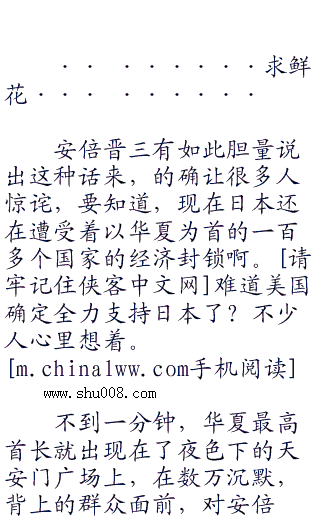 ·· ······求鲜
花·· ······
安倍晋三有如此胆量说
出这种话来，的确让很多人
惊诧，要知道，现在日本还
在遭受着以华夏为首的一百
多个国家的经济封锁啊。[请
牢记住侠客中文网]难道美国
确定全力支持日本了？不少
人心里想着。
[m.china1ww.com手机阅读]
www.shu008.com
不到一分钟，华夏最高
首长就出现在了夜色下的天
安门广场上，在数万沉默，
背上的群众面前，对安倍